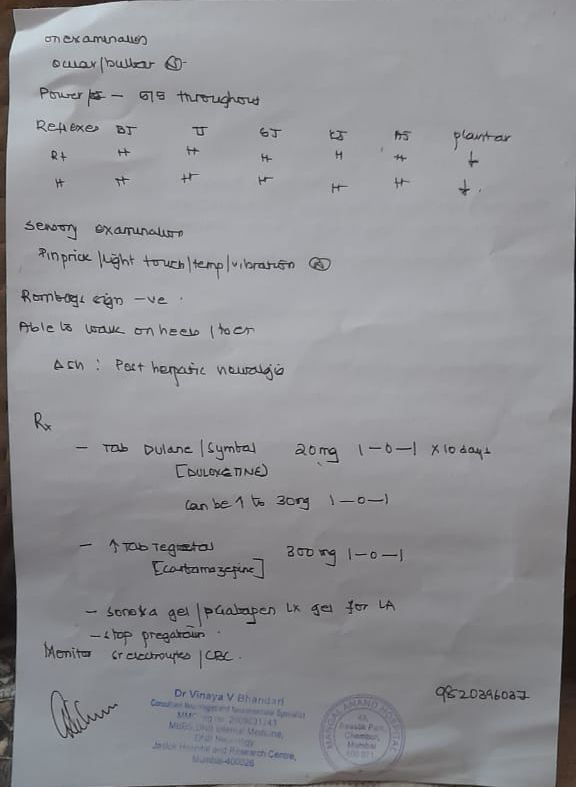 on examination
ocular/bulbar Ⓝ
Power/ - 5/5 throughout
Reflexes BJ TJ SJ KJ AJ plantar
Rt ++ ++ ++ ++ ++ ↓
++ ++ ++ ++ ++ ↓
Sensory examination
Pinprick/light touch/temp/vibration Ⓝ
Rombergs sign -ve
Able to walk on heels/toes
Δsn : Post herpatic neuralgia
Rx
- Tab Dulane/Symbal 20mg 1-0-1 x10 days
[DULOXETINE]
Can be ↑ to 30mg 1-0-1
- ↑ Tab Tegretal 300mg 1-0-1
[Carbamazepine]
- Sonexa gel/pGabapen Lx gel for LA
- Stop pregabalin.
Monitor Sr electroytes/CBC.
9820396037
Dr Vinaya V Bhandari
Consultant Neurologist and Neuromuscular Specialist
MMC reg no:
MBBS, DNB Internal Medicine,
DNB Neurology
Jaslok Hospital and Research Centre,
Mumbai-400026
MANGAL ANAND HOSPITAL
48,
Swastik Park,
Chembur,
Mumbai
400 071